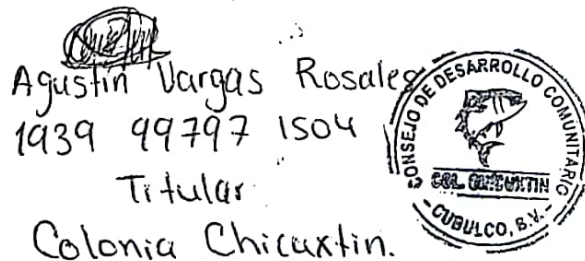 Agustín Vargas Rosales
1939 99797 1504
Titular
Colonia Chicuxtin.
CONSEJO DE DESARROLLO COMUNITARIO
COL. CHICUXTIN
- CUBULCO, B.V. -